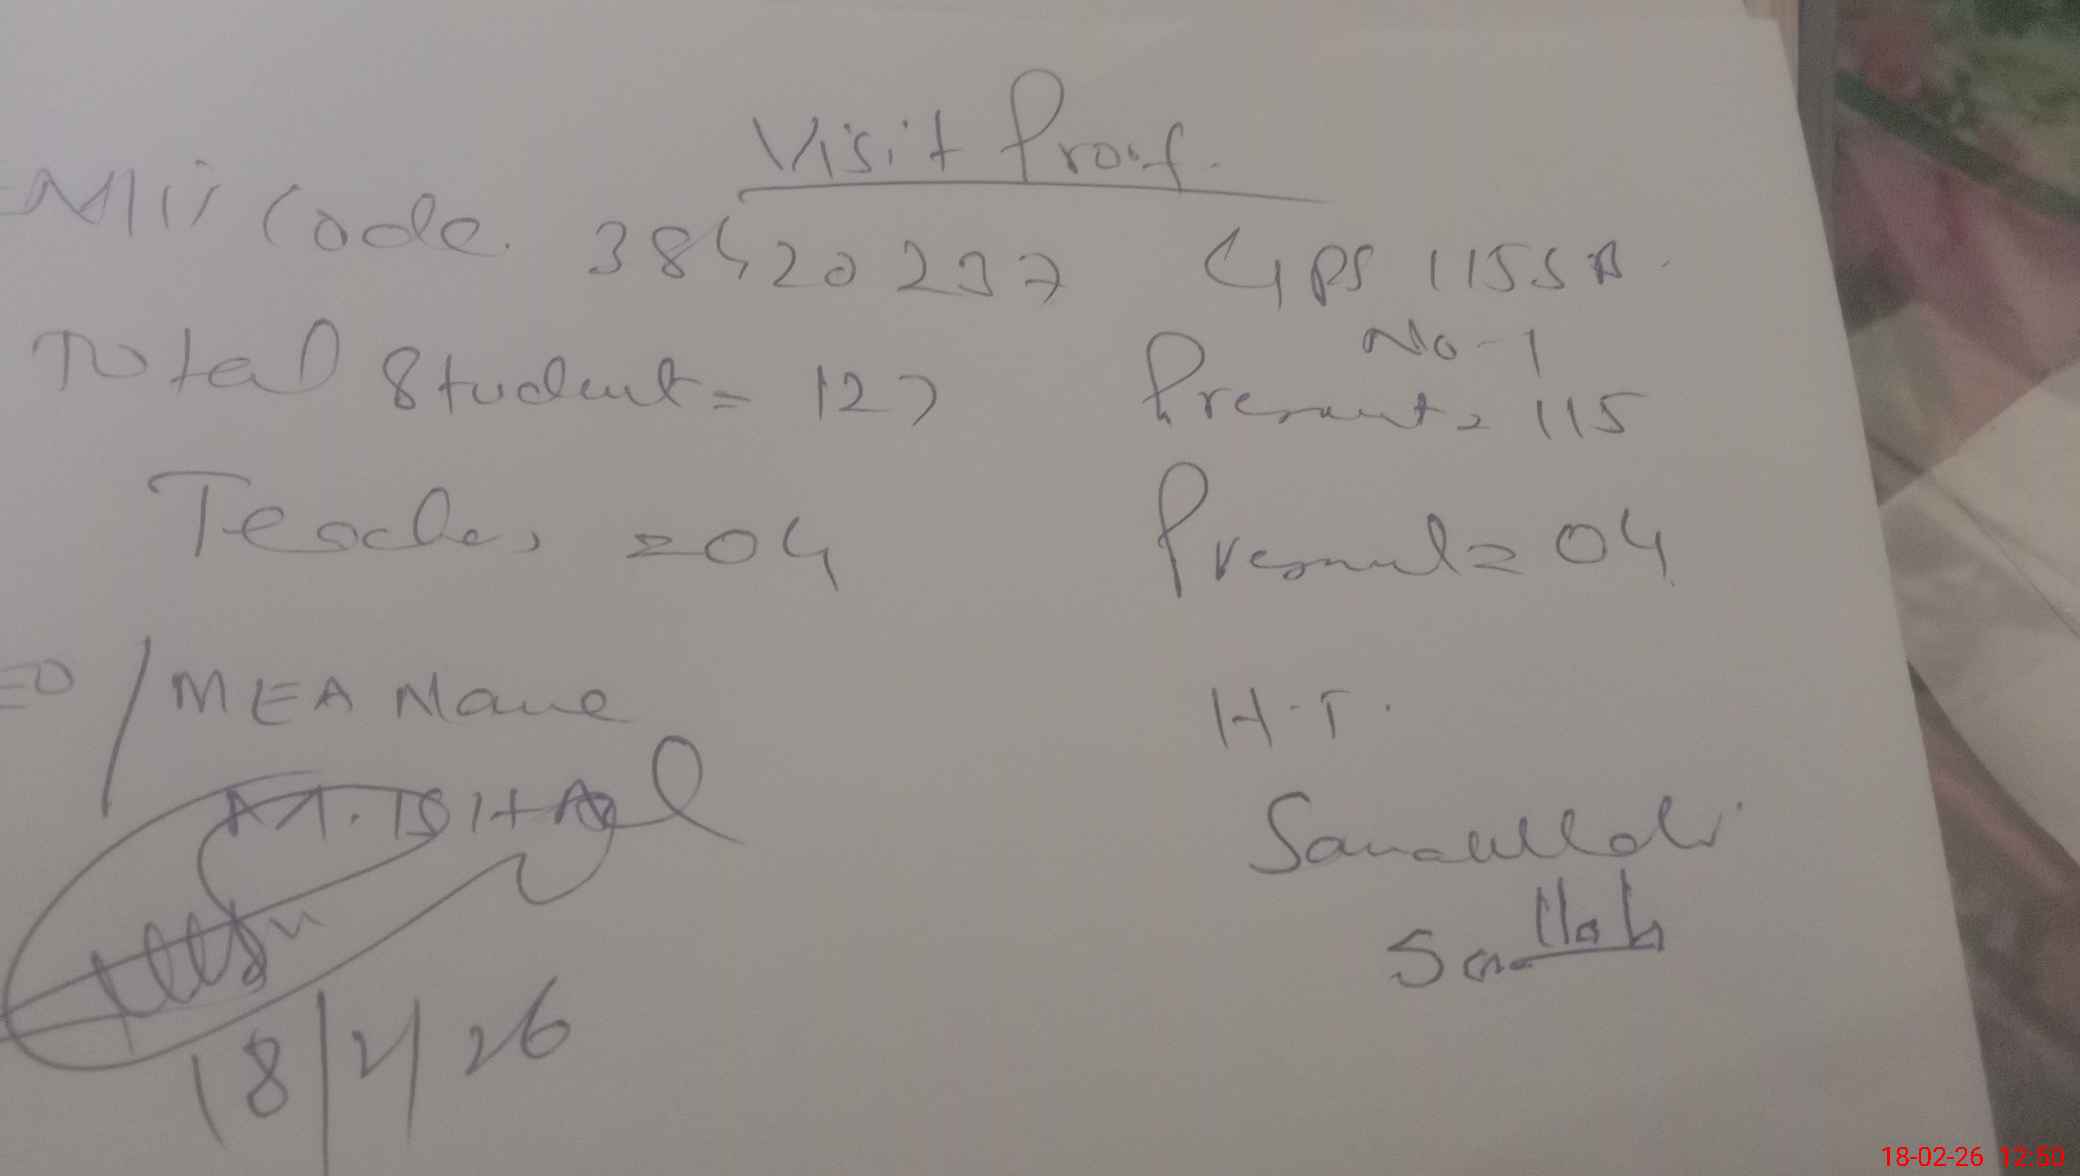 Visit Proof.
EMIS Code. 38420237 GPS 115SB.
No-1
Total Student = 127 Present = 115
Teacher = 04 Present = 04
/MEA Name H.T.
M. ISHAQ Sanaullah
18/2/26
18-02-26 12:50